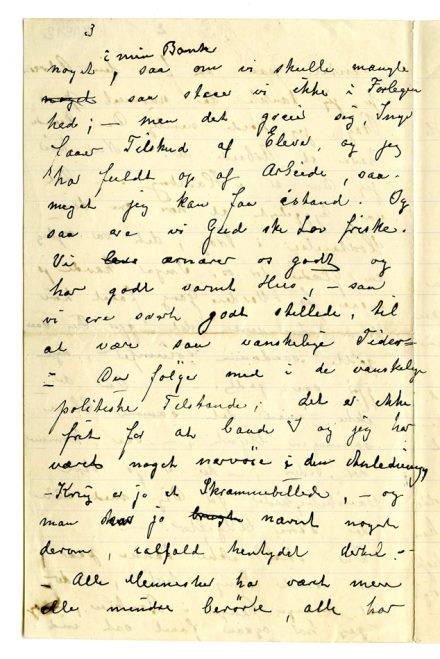 3
i min Bank
noget, saa om vi skulle mangle
noget saa staae vi ikke i Forlegen
hed; — men det greier sig, Inga
faaer Tilskud af Elever, og jeg
har fuldt op af Arbeide, saa-
meget jeg kan faa istand. Og
saa ere vi Gud ske Lov friske.
Vi leve ernærer os godt og
har godt varmt Huus, — saa
vi ere særs godt stillede, til
at være saa vanskelige Tider
— Du følger med i de vanskelige
politiske Tilstande; det er ikke
frit for at baade I og jeg har
været noget nervøse i den Anledning
— Krig er jo et Skræmmebillede, — og
man har jo brugt nævnt noget
derom, ialfald hentydet dertil. —
— Alle Mennesker har været mere
elle mindre berørte, alle har